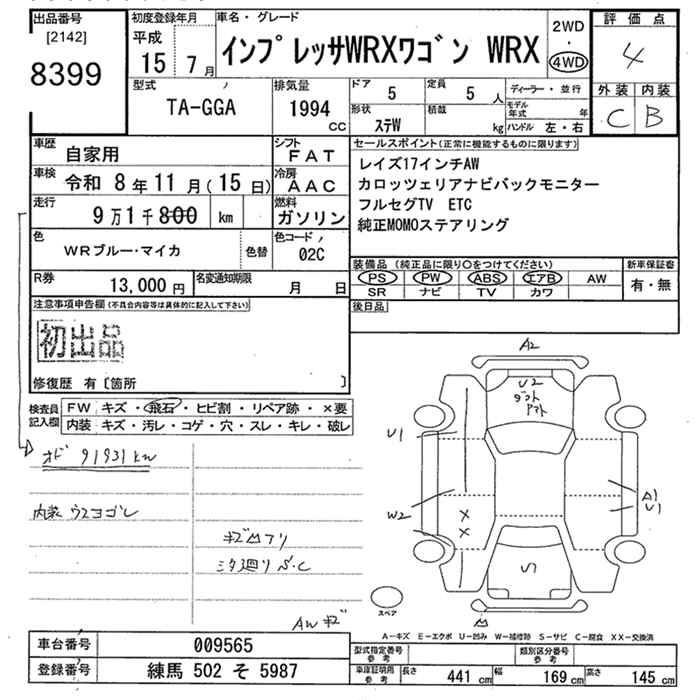 出品番号
[2142]
8399
初度登録年月
平成
15 7月
車名・グレード
インプレッサWRXワゴン WRX
2WD
・
4WD
評価点
4
外装 内装
C B
型式
TA-GGA
排気量
1994
CC
ドア
5
定員
5 人
形状
ステW
積載
kg
ディーラー・並行
モデル年式 年
ハンドル 左・右
車歴
自家用
シフト
FAT
車検
令和 8年 11月(15日)
冷房
AAC
走行
9万1千800 km
燃料
ガソリン
色
WRブルー・マイカ
色替
色コード
02C
R券
13,000円
名変通知期限
月 日
セールスポイント(正常に機能するものに限ります)
レイズ17インチAW
カロッツェリアナビバックモニター
フルセグTV ETC
純正MOMOステアリング
装備品(純正品に限り〇をつけてください)
PS PW ABS エアB AW
SR ナビ TV カワ
新車保証書
有・無
後日品
注意事項申告欄(不具合内容等は具体的に記入して下さい)
初出品
修復歴 有[箇所 ]
検査員記入欄
FW キズ・飛石・ヒビ割・リペア跡・×要
内装 キズ・汚レ・コゲ・穴・スレ・キレ・破レ
オド 91931km
内装 ウスヨゴレ
AWキズ
A2
U2
U1
W2
A1
U1
X
X
S
スペア
A−キズ E−エクボ U−凹み W−補修跡 S−サビ C−腐食 XX−交換済
車台番号
009565
登録番号
練馬 502 そ 5987
型式指定番号
参考
類別区分番号
参考
車庫証明用
参考
長さ 441 cm
幅 169 cm
高さ 145 cm